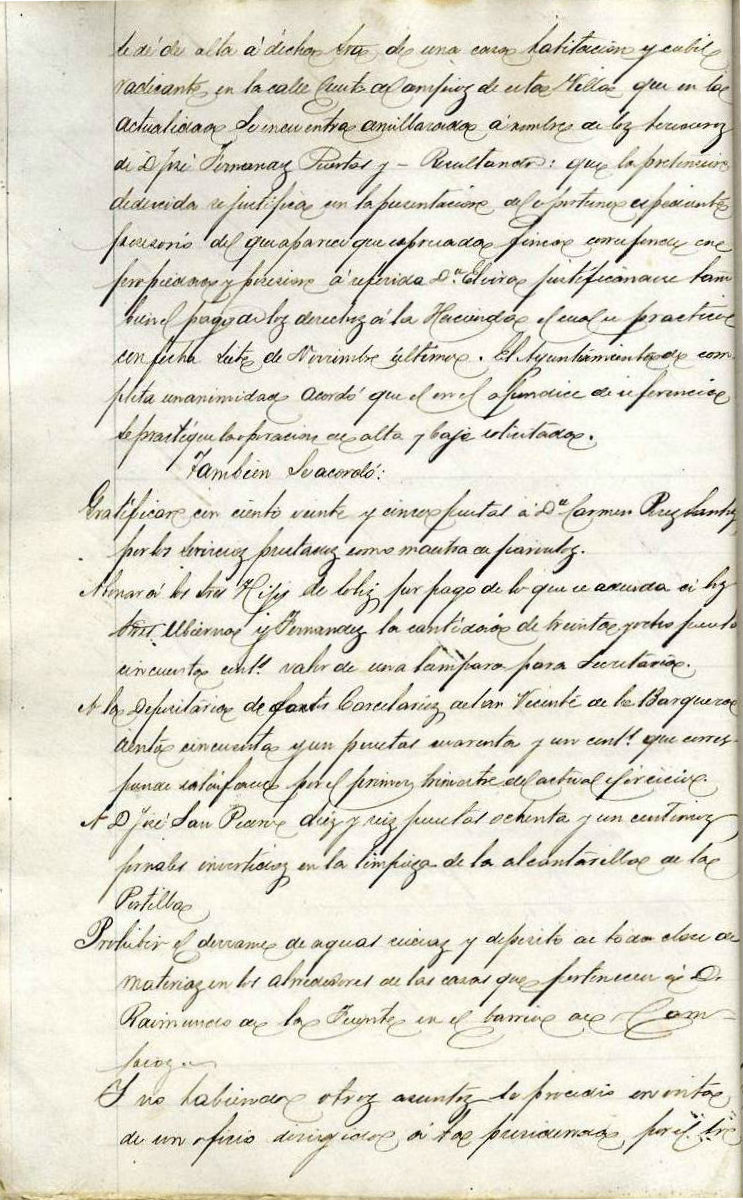 se dé de alta á dicha Sra de una casa habitacion y cubil
radicante en la calle de Campíos de esta Villa que en la
actualidad se encuentra amillarada á nombre de los herederos
de D José Fernandez Puertas y - Resultando: que la pretension
deducida se justifica en la presentacion del oportuno espediente
posesorio del que aparece que espresada finca corresponde en
propiedad y posesion á referida Dª Elvira justificandose tam
bien el pago de los derechos á la Hacienda el cual se practicó
con fecha siete de Noviembre último. El Ayuntamiento de com-
pleta unanimidad acordó que en el apendice de referencia
se practique la operacion de alta y baja solicitada.
Tambien se acordó:
Gratificar con ciento veinte y cinco pesetas á Dª Carmen Perez
por los servicios prestados como maestra de parvulos.
Abonar á los Sres Hijos de por pago de lo que se adeuda á los
Sres y Fernandez la cantidad de treinta y ocho pesetas
cincuenta centˢ valor de una lampara para Secretaría.
A la Depositaría de Carcelarios de San Vicente de la Barquera
ciento cincuenta y un pesetas cuarenta y un centˢ que corres-
ponde satisfacer por el primer trimestre del actual ejercicio.
A D José San Pedro diez y seis pesetas ochenta y un centimos
jornales invertidos en la limpieza de la alcantarilla de la
Portilla
Prohibir el derrame de aguas sucias y deposito de toda clase de
materias en los alrededores de las casas que pertenecen á D.
Raimundo de la Fuente en el barrio de Cam-
píos.
Y no habiendo otros asuntos se procedió en vista
de un oficio dirigido á la presidencia por el Sr